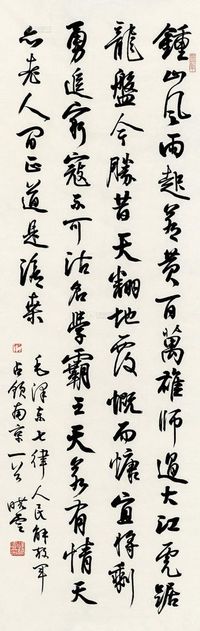 鍾山風雨起蒼黃百萬雄師過大江虎踞
龍盤今勝昔天翻地覆慨而慷宜將剩
勇追窮寇不可沽名學霸王天若有情天
亦老人間正道是滄桑
毛澤東七律人民解放軍
占領南京一首